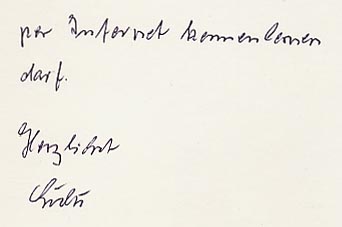 per Internet kennenlernen
darf.
Herzlichst